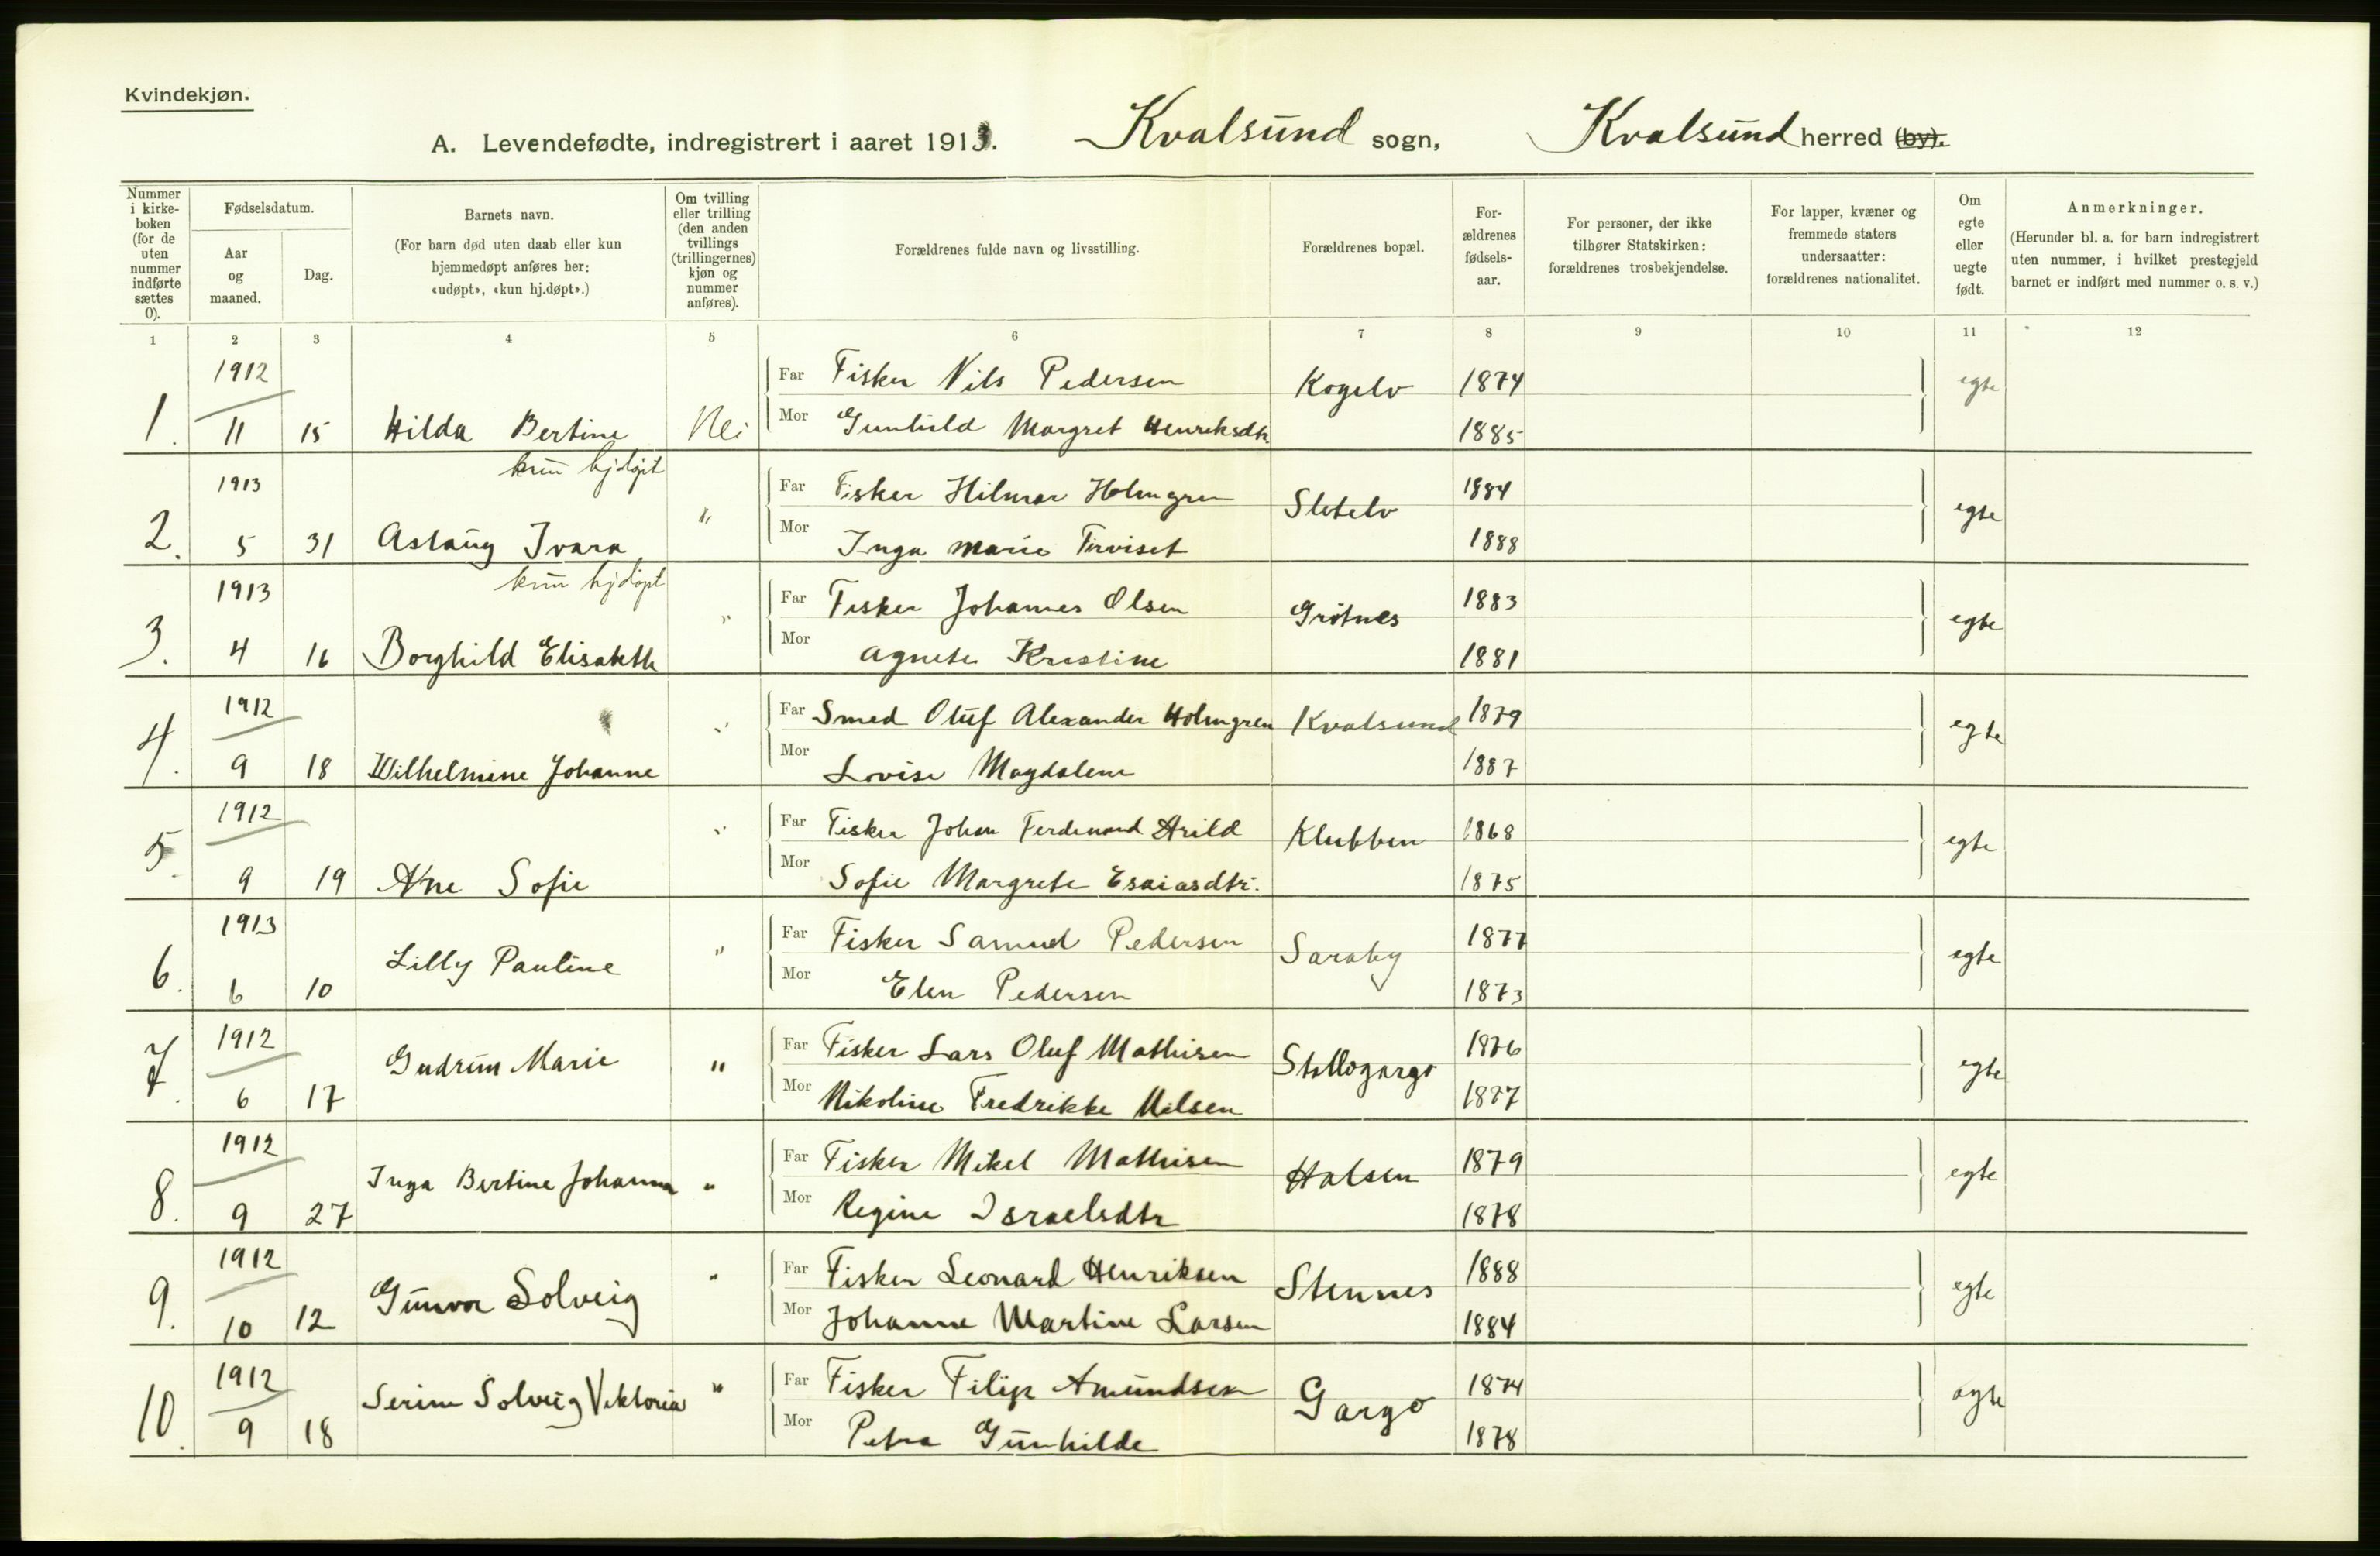 Kvindekjøn.
A. Levendefødte, indregistrert i aaret 1913. Kvalsund sogn, Kvalsund herred (by).
Nummer i kirkeboken (for de uten nummer indførte sættes 0).
Fødselsdatum.
Aar og maaned.
Dag.
Barnets navn.
(For barn død uten daab eller kun hjemmedøpt anføres her: «udøpt», «kun hj.døpt».)
Om tvilling eller trilling (den anden tvillings (trillingernes) kjøn og nummer anføres).
Forældrenes fulde navn og livsstilling.
Forældrenes bopæl.
For-ældrenes fødsels-aar.
For personer, der ikke tilhører Statskirken: forældrenes trosbekjendelse.
For lapper, kvæner og fremmede staters undersaatter: forældrenes nationalitet.
Om egte eller uegte født.
Anmerkninger.
(Herunder bl. a. for barn indregistrert uten nummer, i hvilket prestegjeld barnet er indført med nummer o. s. v.)
1 2 3 4 5 6 7 8 9 10 11 12
1912 Far Fisker Nils Pedersen Kogelv 1874 egte
1. 11 15 Hilda Bertine Nei Mor Gunhild Margret Henriksdtr. 1885
kun hjdøpt
1913 Far Fisker Hilmar Holmgren Sletelv 1884 egte
2. 5 31 Aslaug Ivara " Mor Inga Marie 1888
kun hjdøpt
1913 Far Fisker Johannes Olsen Grøtnes 1883 egte
3. 4 16 Borghild Elisabeth " Mor Agnete Kristine 1881
1912 Far Smed Oluf Alexander Holmgren Kvalsund 1879 egte
4. 9 18 Wilhelmine Johanne " Mor Lovise Magdalene 1887
1912 Far Fisker Johan Ferdinand Arild Klubben 1868 egte
5. 9 19 Ane Sofie " Mor Sofie Margrete Esaiasdtr. 1875
1913 Far Fisker Samuel Pedersen Saraby 1877 egte
6. 6 10 Lilly Pauline " Mor Elen Pedersen 1873
1912 Far Fisker Lars Oluf Mathisen Stallogargo 1876 egte
7. 6 17 Gudrun Marie " Mor Nikoline Fredrikke Nilsen 1877
1912 Far Fisker Mikel Mathisen Halsen 1879 egte
8. 9 27 Inga Bertine Johanna " Mor Regine Israelsdtr 1878
1912 Far Fisker Leonard Henriksen Stennes 1888 egte
9. 10 12 Gunvor Solveig " Mor Johanne Martine Larsen 1884
1912 Far Fisker Filip Amundsen Gargo 1874 egte
10. 9 18 Serine Solveig Viktoria " Mor Petra Gunhilde 1878